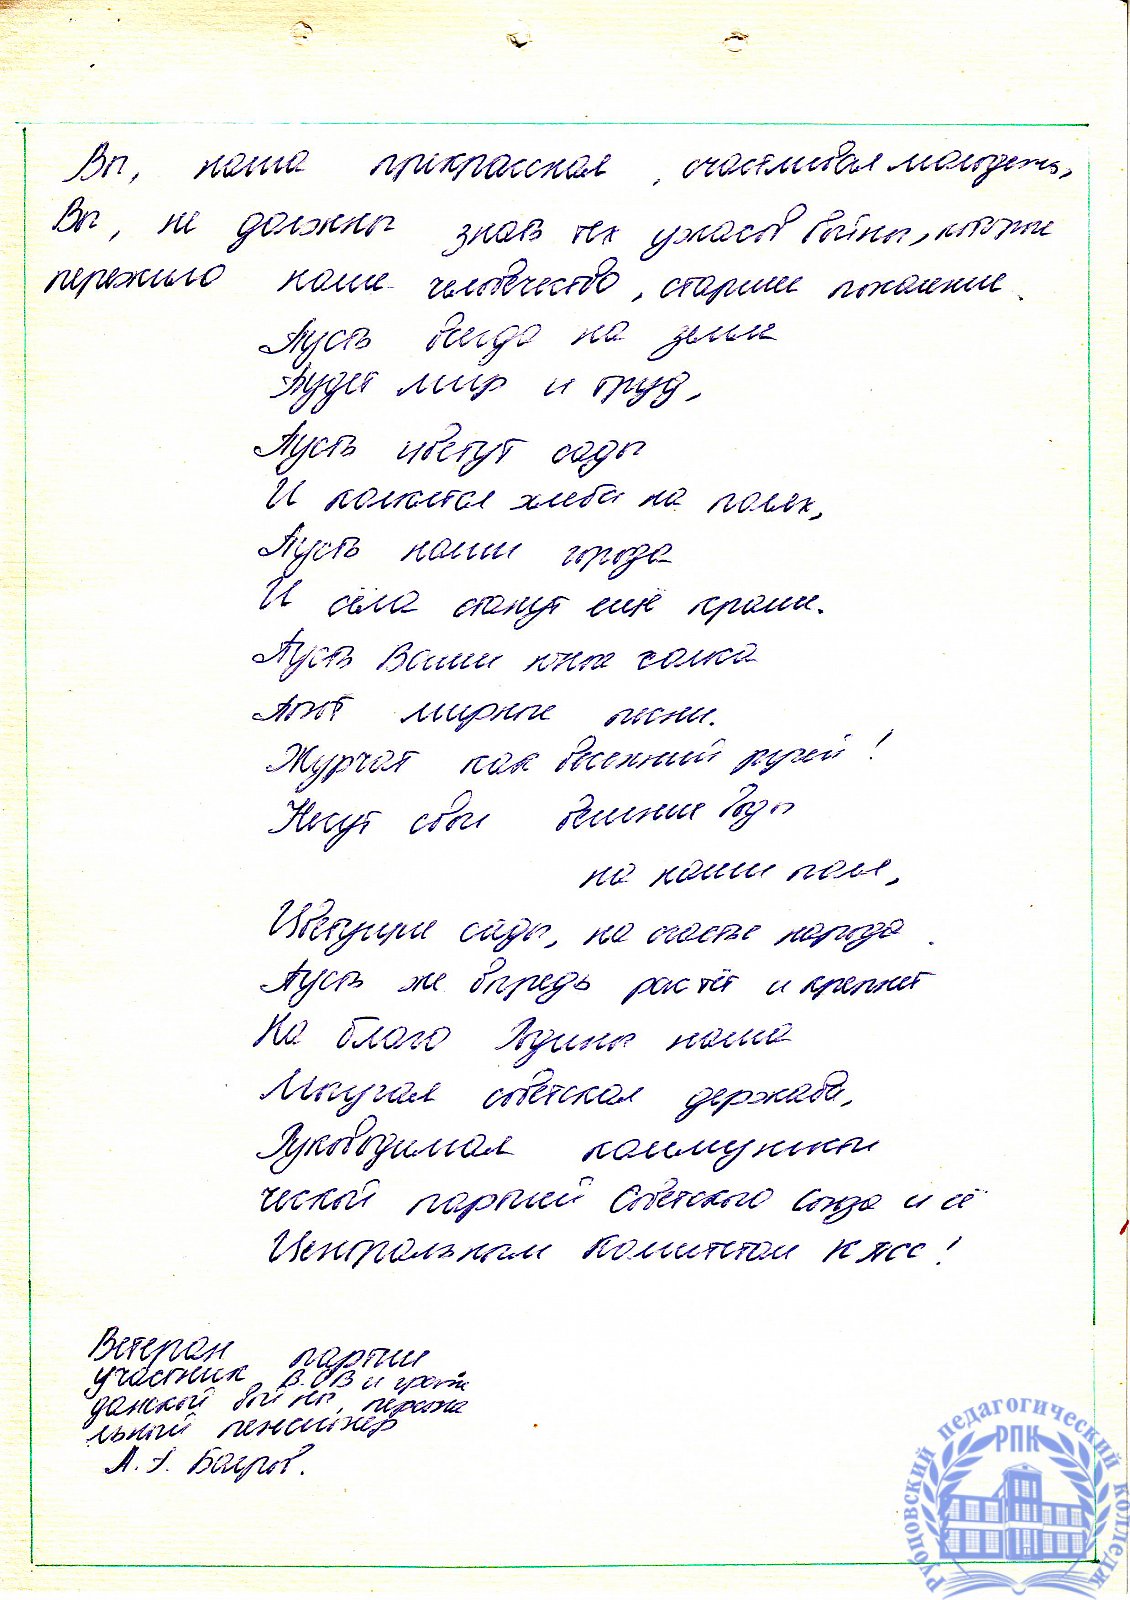 Вы, наша прекрасная, счастливая молодежь,
Вы, не должны знать тех ужасов войны, которые
пережило наше человечество, старшее поколение.
Пусть всегда на земле
Будет мир и труд,
Пусть цветут сады
И колыхаются хлеба на полях,
Пусть наши города
И сёла станут ещё краше.
Пусть Ваши юные голоса
Поют мирные песни.
Журчат как весенний ручей!
Несут свои вешние воды
на наши поля,
Цветущие сады, на счастье народа.
Пусть же впредь растёт и крепнет
На благо Родины наша
Могучая советская держава,
Руководимая коммунисти
ческой партией Советского Союза и её
Центральным Комитетом КПСС!
Ветеран партии
участник В.О.В и граж
данской войны, персона
льный пенсионер
А. Баиров.
Рубцовский педагогический колледж
РПК